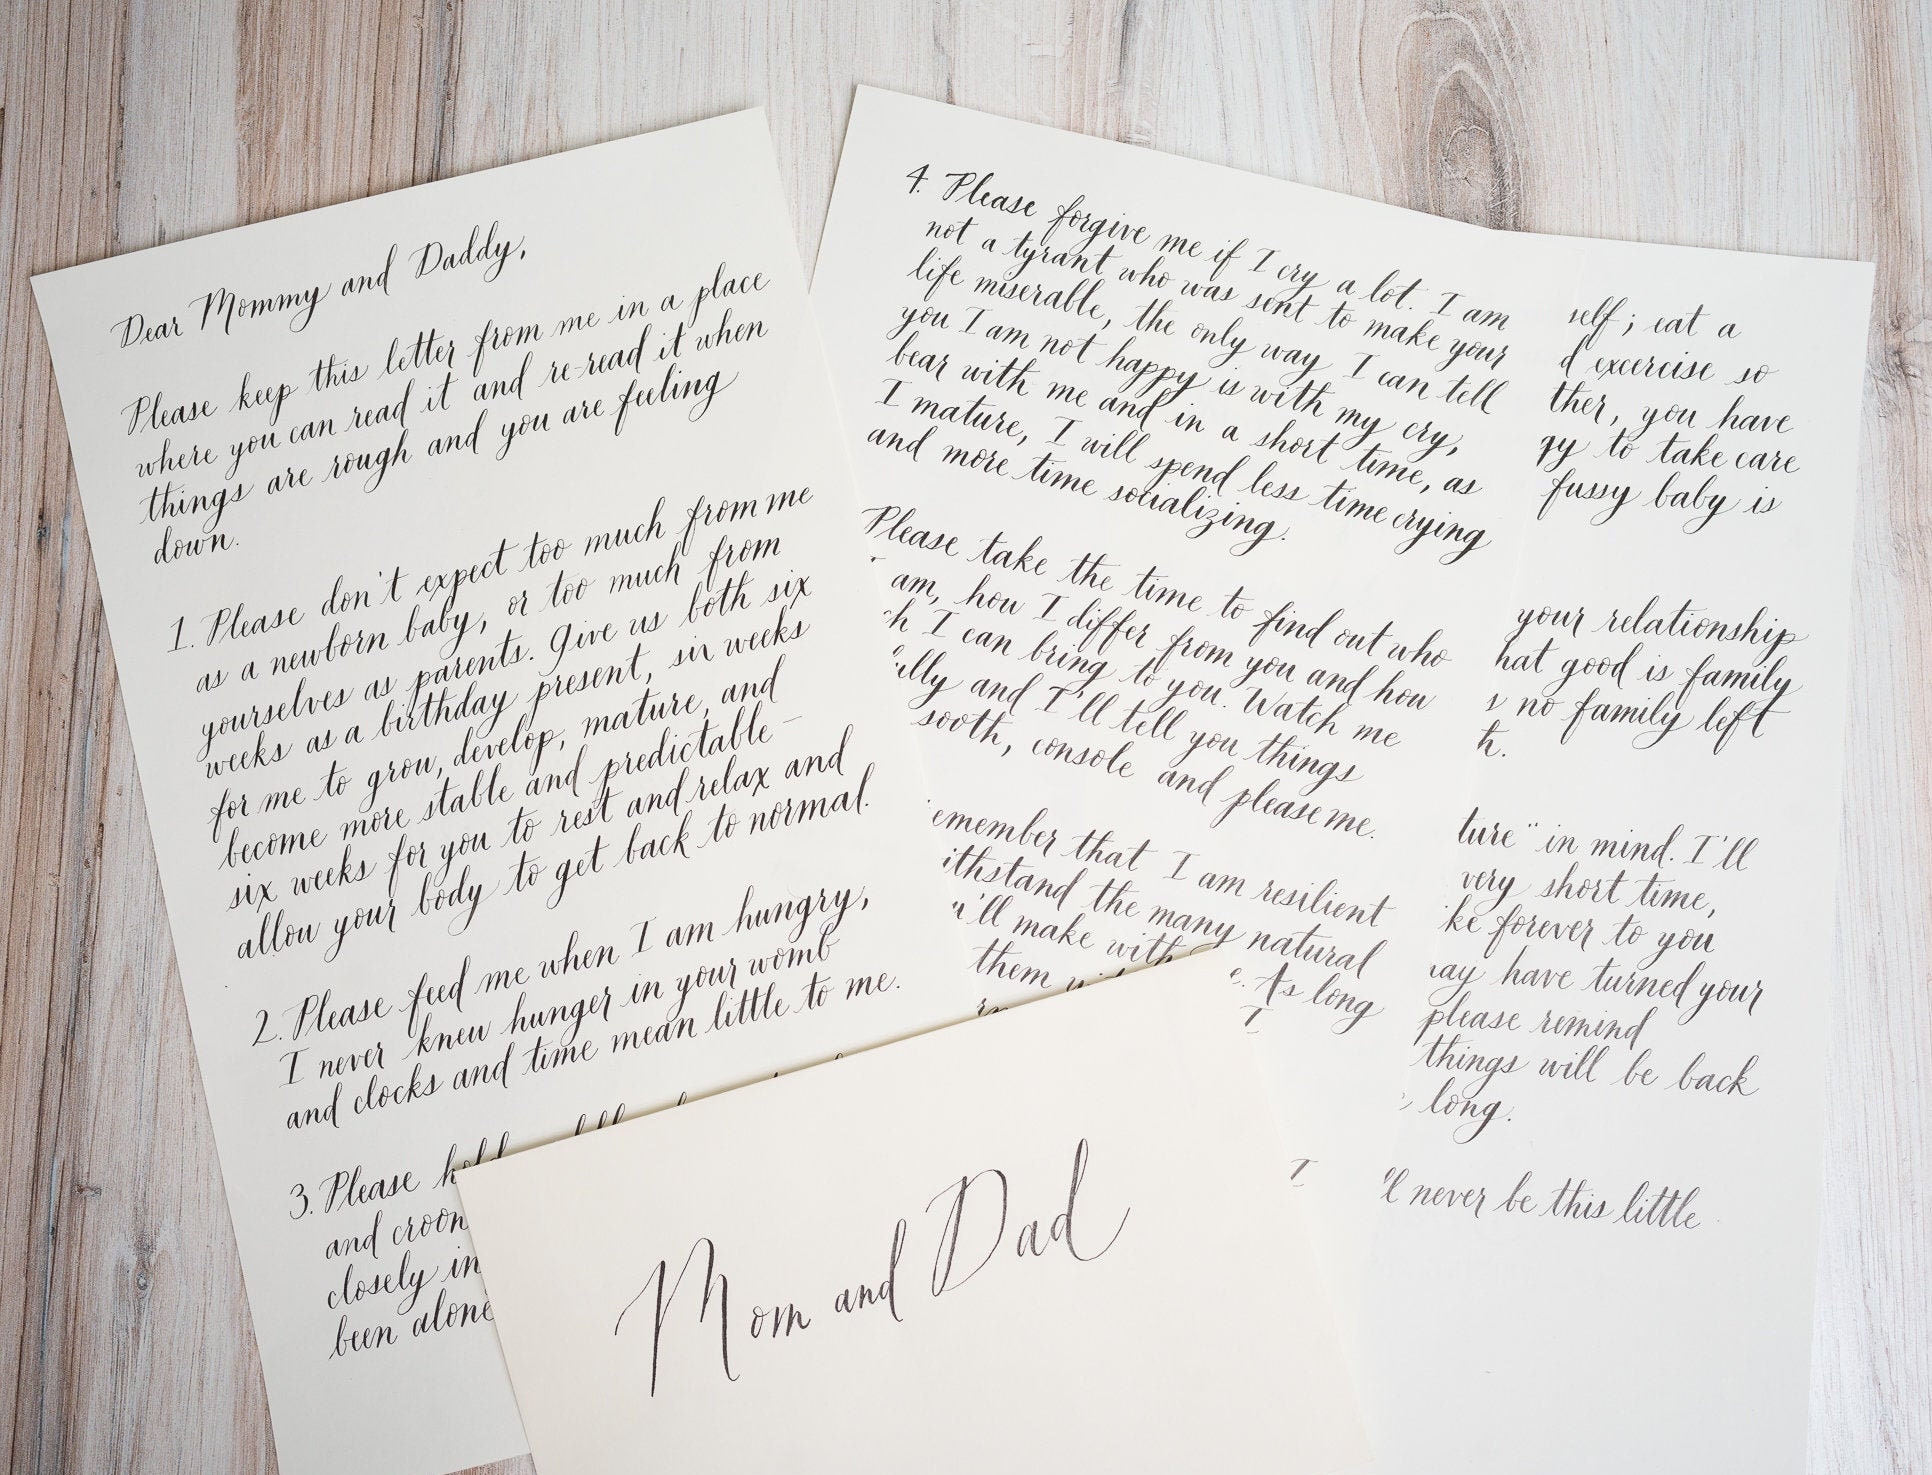 Dear Mommy and Daddy,
Please keep this letter from me in a place
where you can read it and re-read it when
things are rough and you are feeling
down.
1. Please don't expect too much from me
as a newborn baby, or too much from
yourselves as parents. Give us both six
weeks as a birthday present, six weeks
for me to grow, develop, mature, and
become more stable and predictable –
six weeks for you to rest and relax and
allow your body to get back to normal.
2. Please feed me when I am hungry,
I never knew hunger in your womb
and clocks and time mean little to me.
3. Please
and croon
closely in
been alone
4. Please forgive me if I cry a lot. I am
not a tyrant who was sent to make your
life miserable, the only way I can tell
you I am not happy is with my cry,
bear with me and in a short time, as
I mature, I will spend less time crying
and more time socializing.
Please take the time to find out who
am, how I differ from you and how
I can bring to you. Watch me
and I'll tell you things
sooth, console and please me.
that I am resilient
the many natural
make with
them
As long
I
self; eat a
excercise so
you have
to take care
fussy baby is
your relationship
good is family
no family left
in mind. I'll
very short time,
forever to you
have turned your
please remind
things will be back
long.
I
never be this little
Mom and Dad